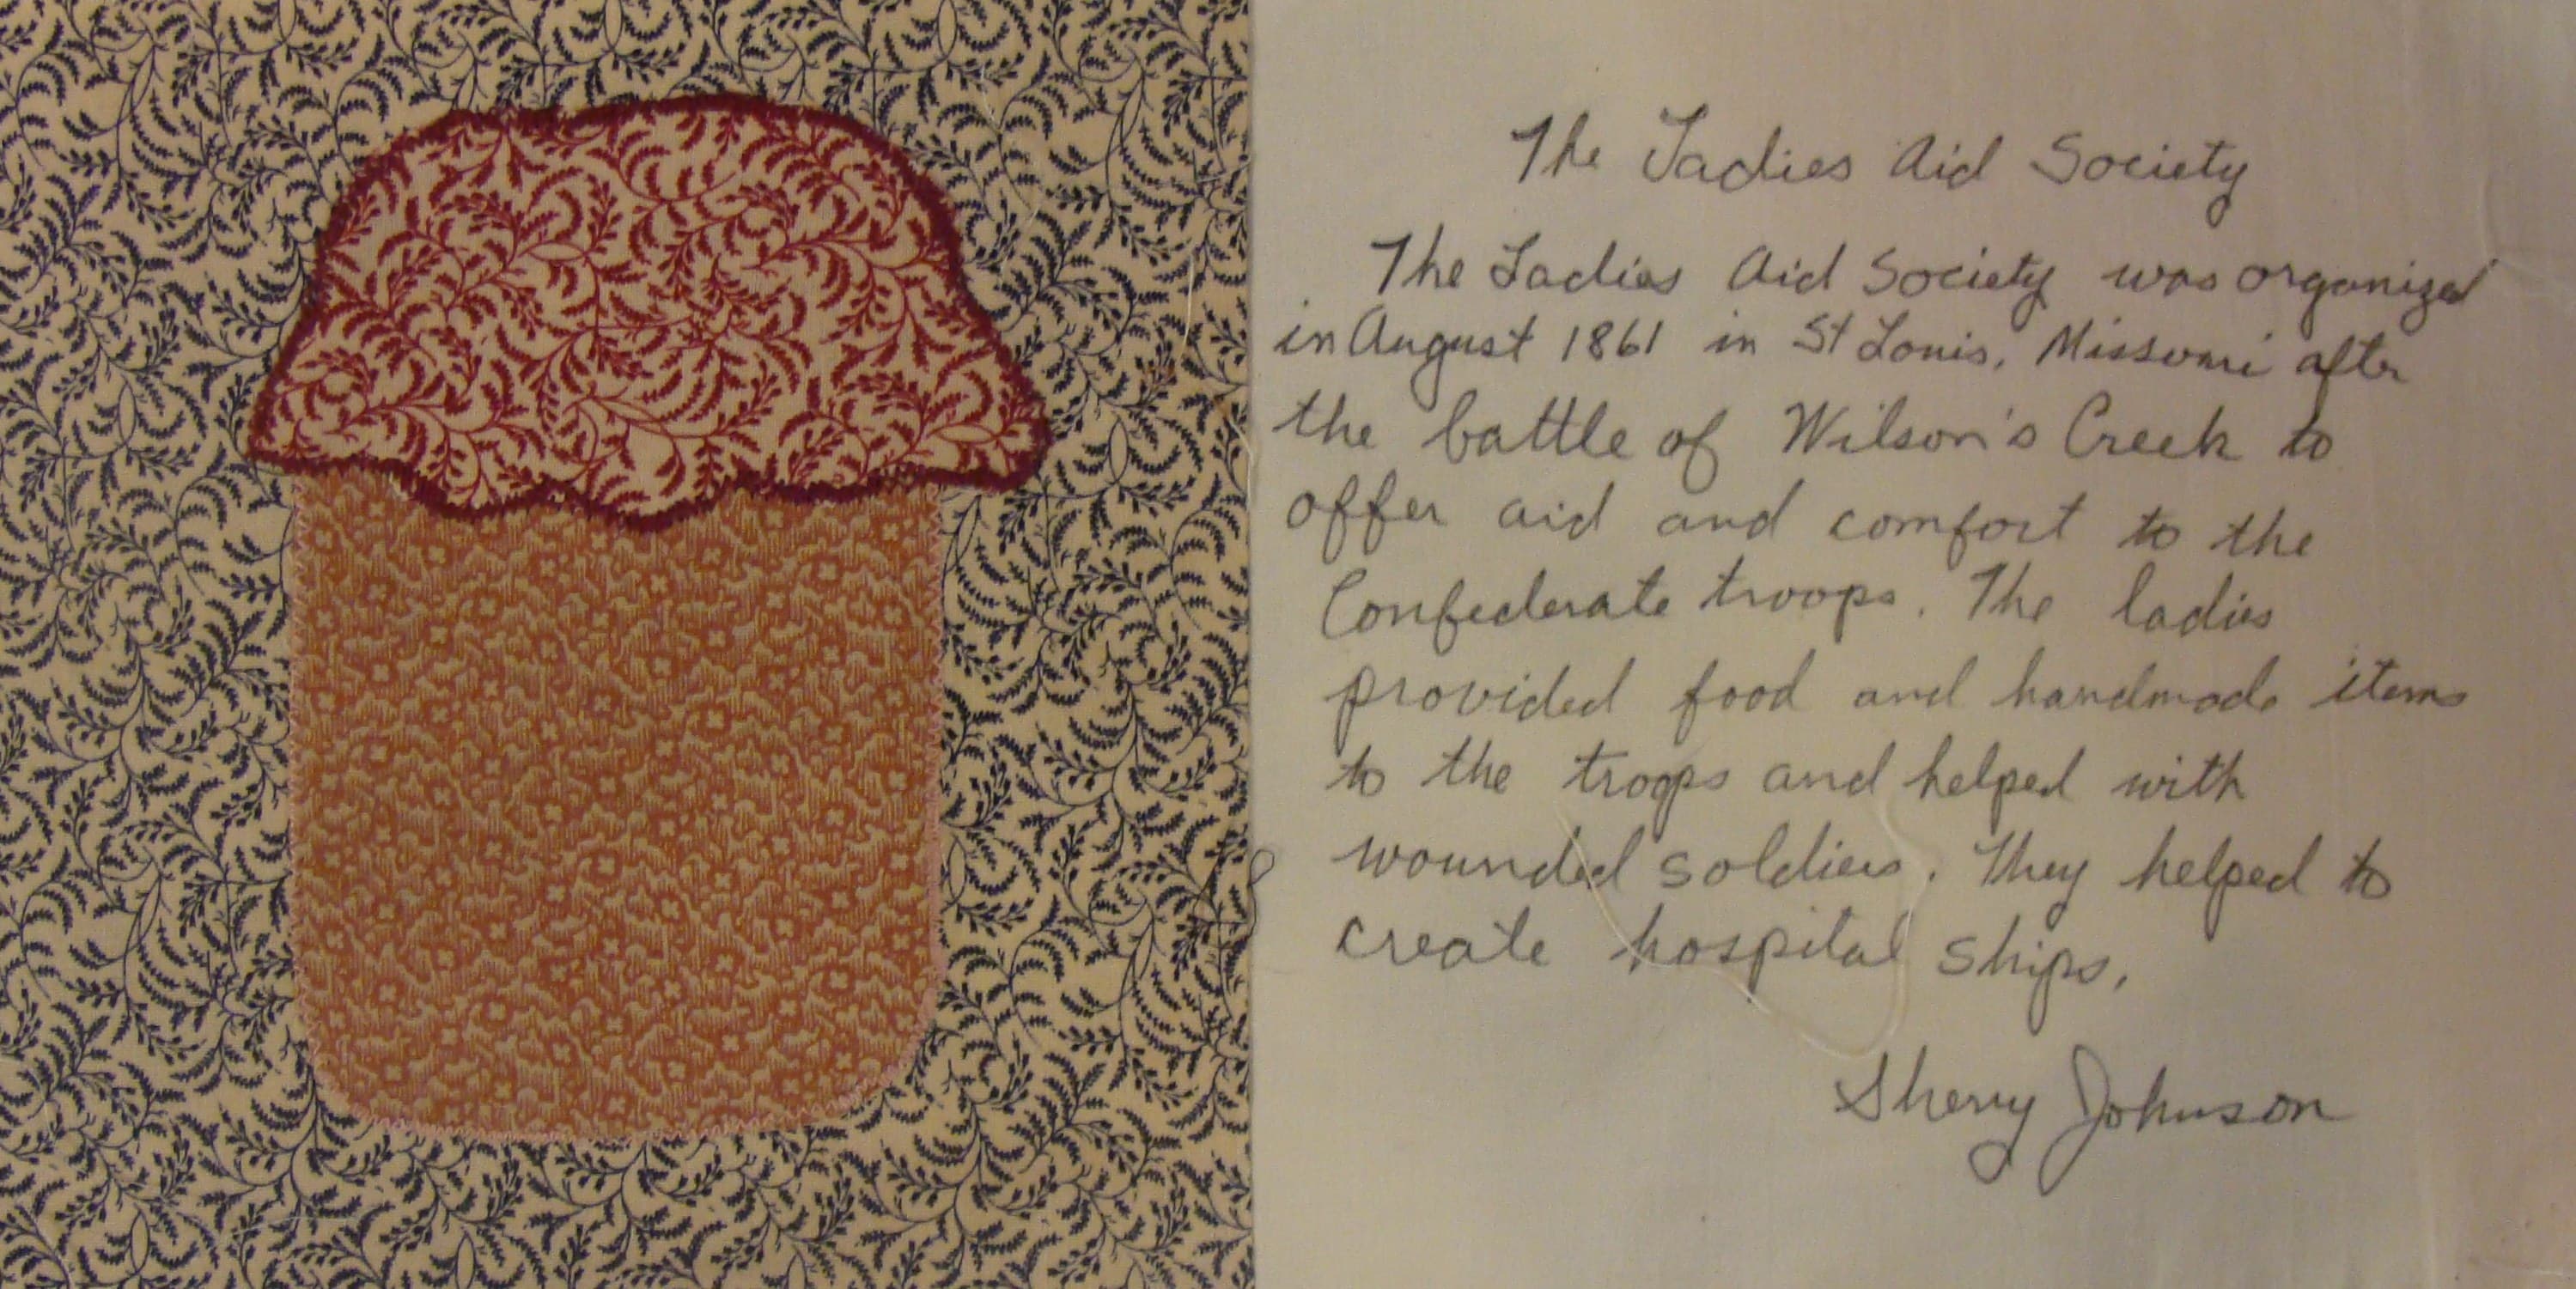 The Ladies Aid Society
The Ladies Aid Society was organized
in August 1861 in St Louis, Missouri after
the battle of Wilson's Creek to
offer aid and comfort to the
Confederate troops. The ladies
provided food and handmade items
to the troops and helped with
wounded soldiers. They helped to
create hospital ships.
Sherry Johnson